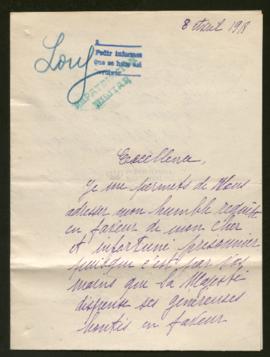 8 Avril 1918
Pedir informes
que se hala del
Long
REPATRIACION
MILITAR
Excellence,
Je me permets de Vous
adresser mon humble requête
en faveur de mon cher
et infortuné prisonnier
puisque c'est par vos
mains que Sa Majesté
dispense ses généreuses
bontés en faveur